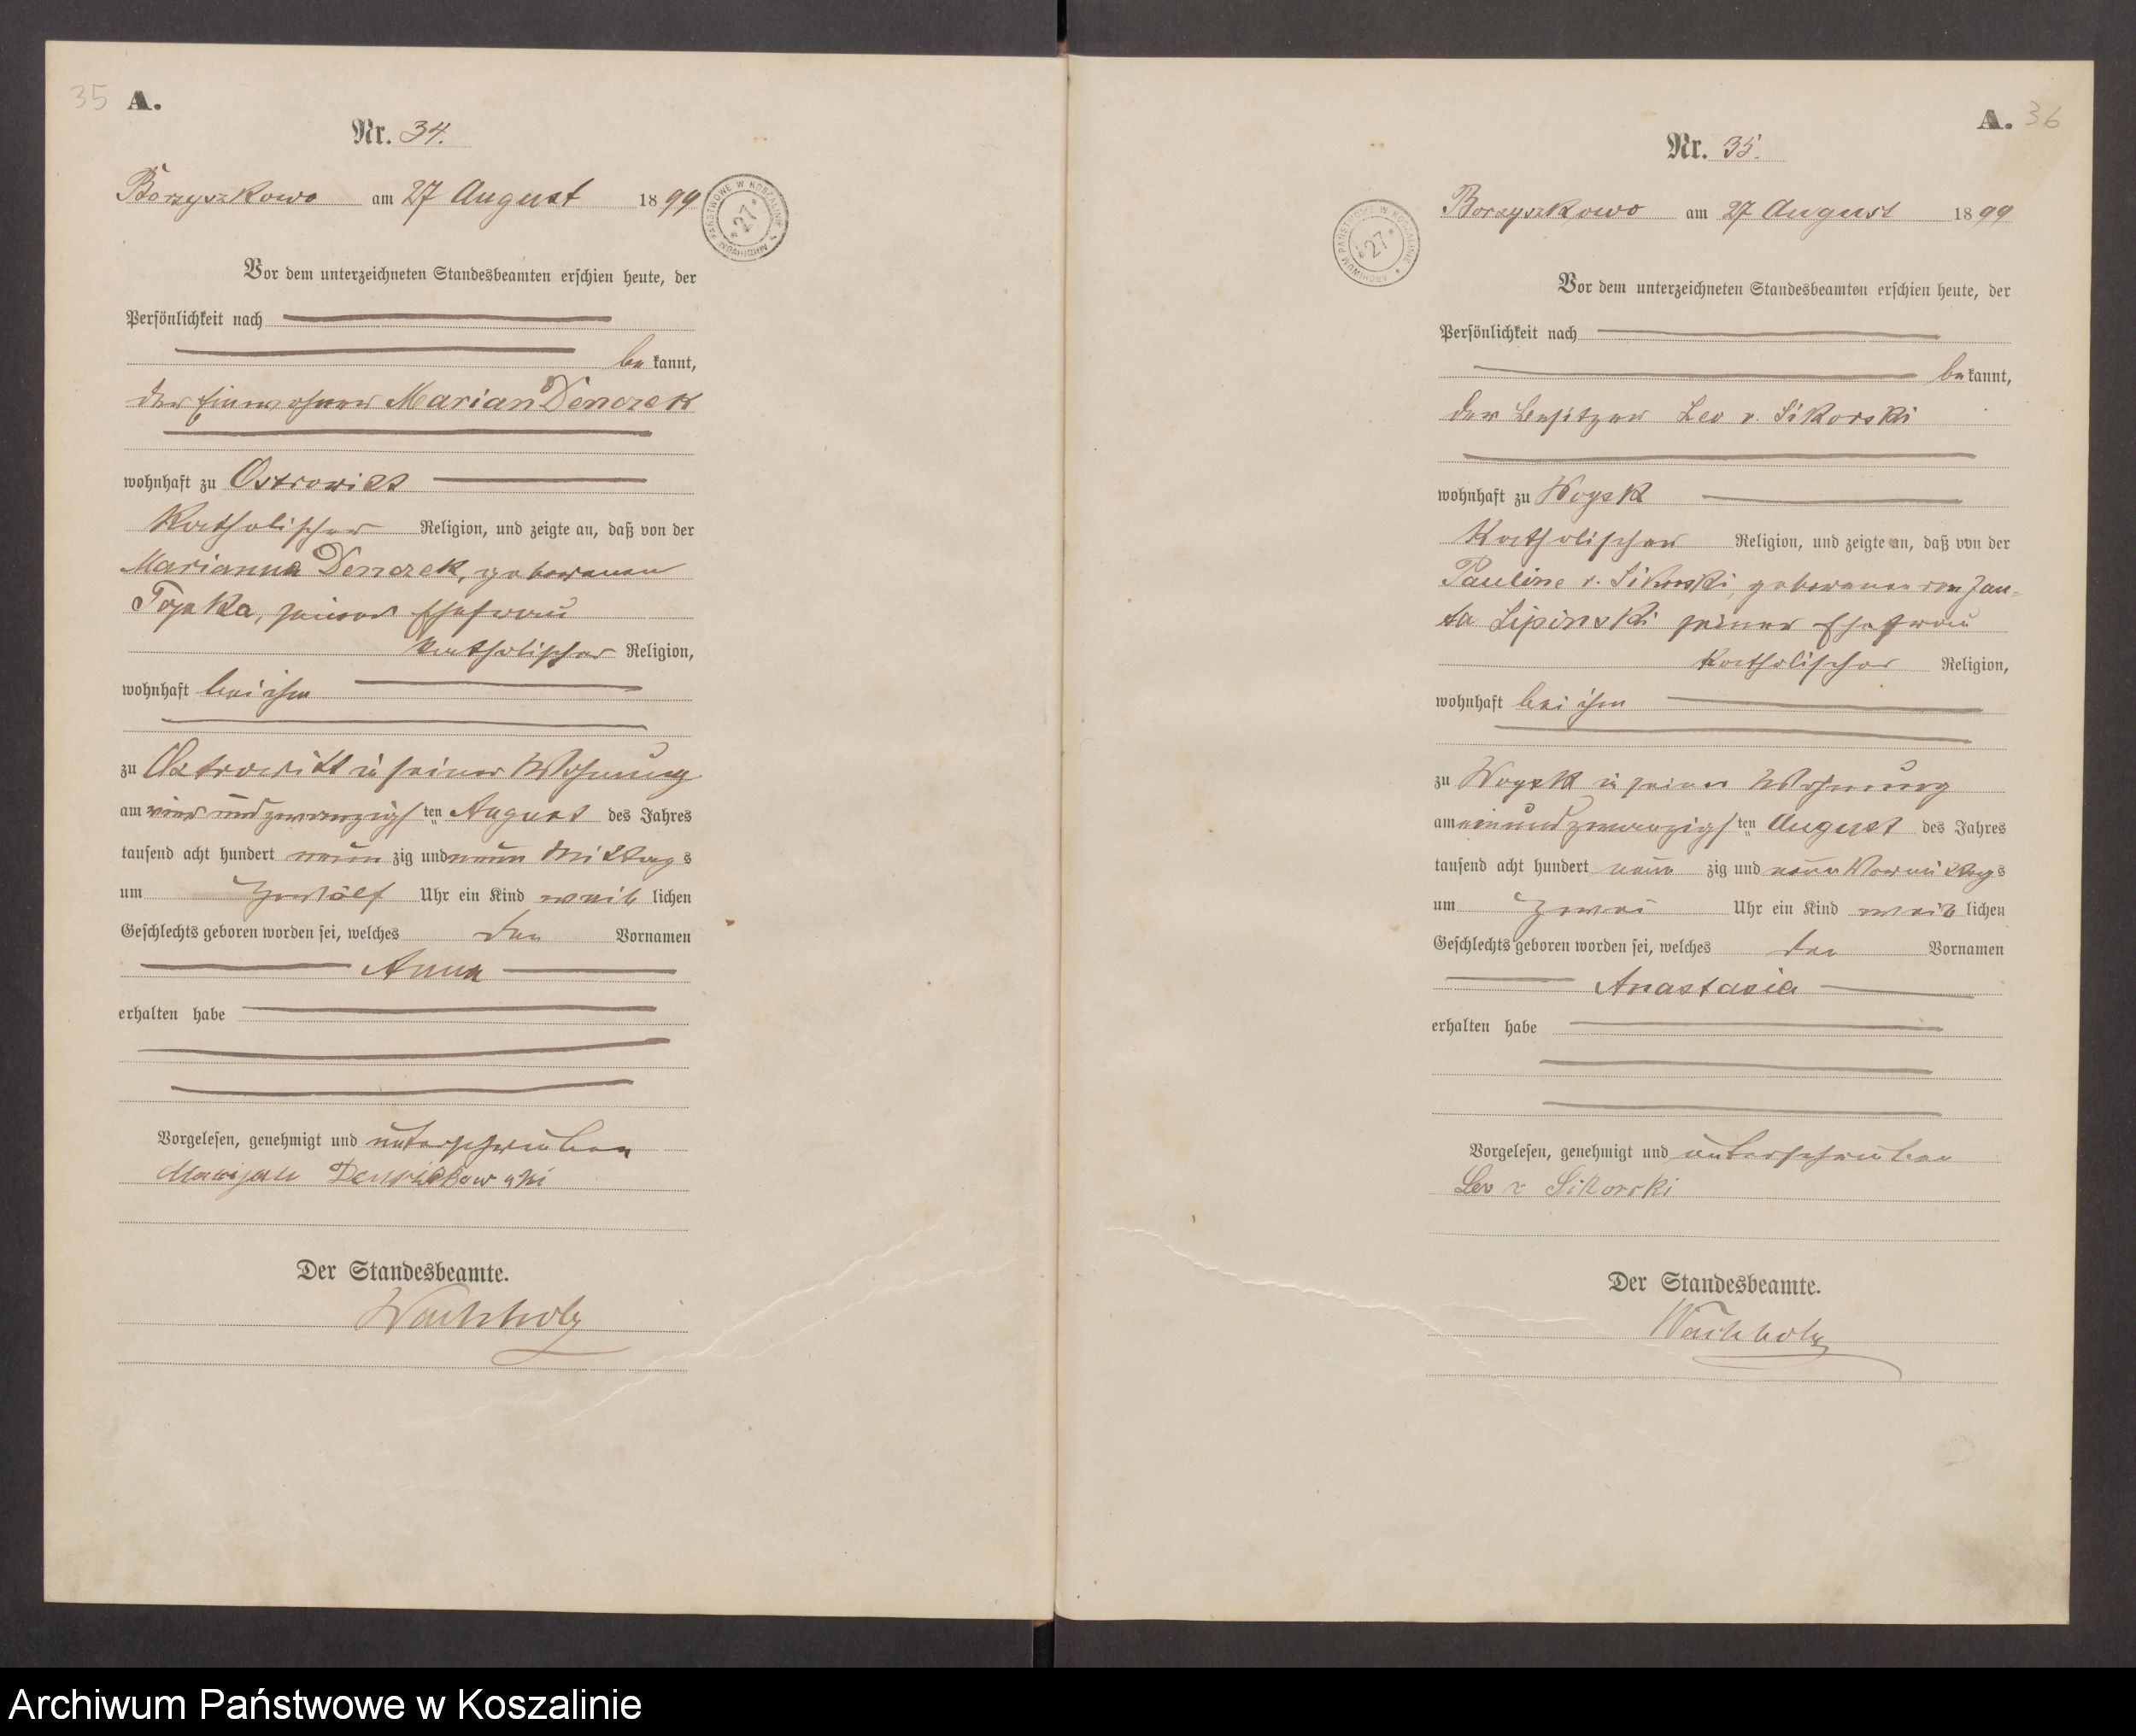 35 A.
Nr. 34.
Borzyszkowo am 27 August 1899
ARCHIWUM PAŃSTWOWE W KOSZALINIE * 27 *
Vor dem unterzeichneten Standesbeamten erschien heute, der
Persönlichkeit nach
be kannt,
der Einwohner Marian Denczek
wohnhaft zu Ostrowitt
katholischer Religion, und zeigte an, daß von der
Marianna Denczek, geborenen
Topka, seiner Ehefrau
katholischer Religion,
wohnhaft bei ihm
zu Ostrowitt in seiner Wohnung
am vier und zwanzigsten August des Jahres
tausend acht hundert neun zig und neun Mittags
um zwölf Uhr ein Kind weib lichen
Geschlechts geboren worden sei, welches den Vornamen
Anna
erhalten habe
Vorgelesen, genehmigt und unterschrieben
Marijan
Der Standesbeamte.
Wachholz
A. 36
Nr. 35.
Borzyszkowo am 27 August 1899
ARCHIWUM PAŃSTWOWE W KOSZALINIE * 27 *
Vor dem unterzeichneten Standesbeamten erschien heute, der
Persönlichkeit nach
be kannt,
der Besitzer Leo v. Sikorski
wohnhaft zu Woysk
katholischer Religion, und zeigte an, daß von der
Pauline v. Sikorski, geborenen von Jan-
ta Lipinski seiner Ehefrau
katholischer Religion,
wohnhaft bei ihm
zu Woysk in seiner Wohnung
am einundzwanzigsten August des Jahres
tausend acht hundert neun zig und neun Vormittags
um zwei Uhr ein Kind weib lichen
Geschlechts geboren worden sei, welches den Vornamen
Anastasia
erhalten habe
Vorgelesen, genehmigt und unterschrieben
Leo v Sikorski
Der Standesbeamte.
Wachholz
Archiwum Państwowe w Koszalinie